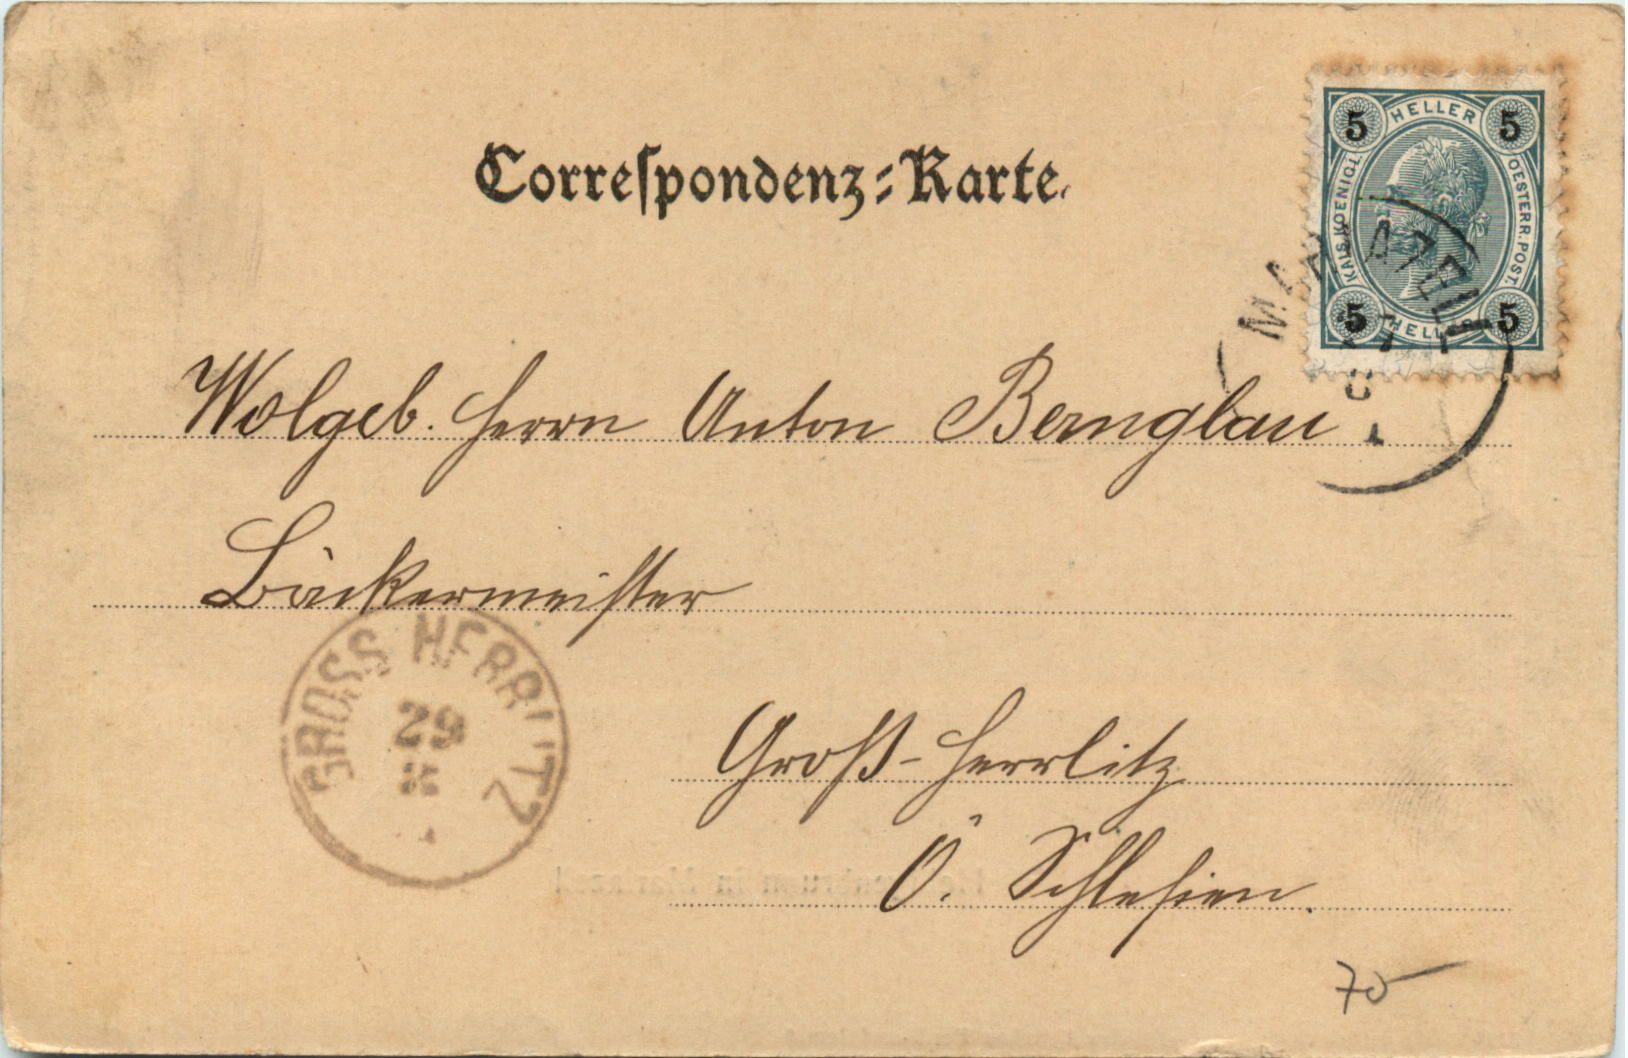 Correspondenz-Karte.
5 HELLER 5
KAIS. KOENIGL.
OESTERR. POST.
5 HELLER 5
Wolgeb. Herrn Anton Bernglau
Bäckermeister
GROSS HERRLITZ
29
Groß-Herrlitz
Ö. Schlesien.
70